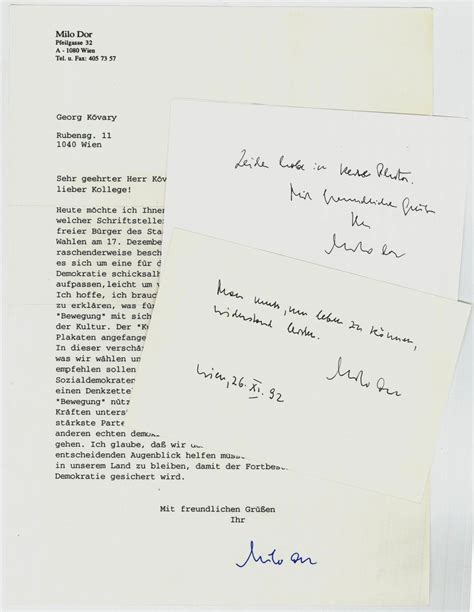 Milo Dor
Pfeilgasse 32
A - 1080 Wien
Tel. u. Fax: 405 73 57
Georg Kövary
Rubensg. 11
1040 Wien
Sehr geehrter Herr Köv
lieber Kollege!
Heute möchte ich Ihnen
welcher Schriftstelle
freier Bürger des Sta
Wahlen am 17. Dezembe
raschenderweise besch
es sich um eine für d
Demokratie schicksalh
aufpassen, leicht um v
Ich hoffe, ich brauc
zu erklären, was für
"Bewegung" mit sich
der Kultur. Der "K
Plakaten angefange
In dieser verschär
was wir wählen un
empfehlen sollen
Sozialdemokraten
einen Denkzette
"Bewegung" nütz
Kräften unters
stärkste Parte
anderen echten demok
gehen. Ich glaube, daß wir de
entscheidenden Augenblick helfen müsse
in unserem Land zu bleiben, damit der Fortbes
Demokratie gesichert wird.
Mit freundlichen Grüßen
Ihr
Milo Dor
Leider habe ich keine Photos.
Mit freundlichen Grüßen
Ihr
Milo Dor
Man muss, um leben zu können,
Widerstand leisten.
Milo Dor
Wien, 26. XI. 92